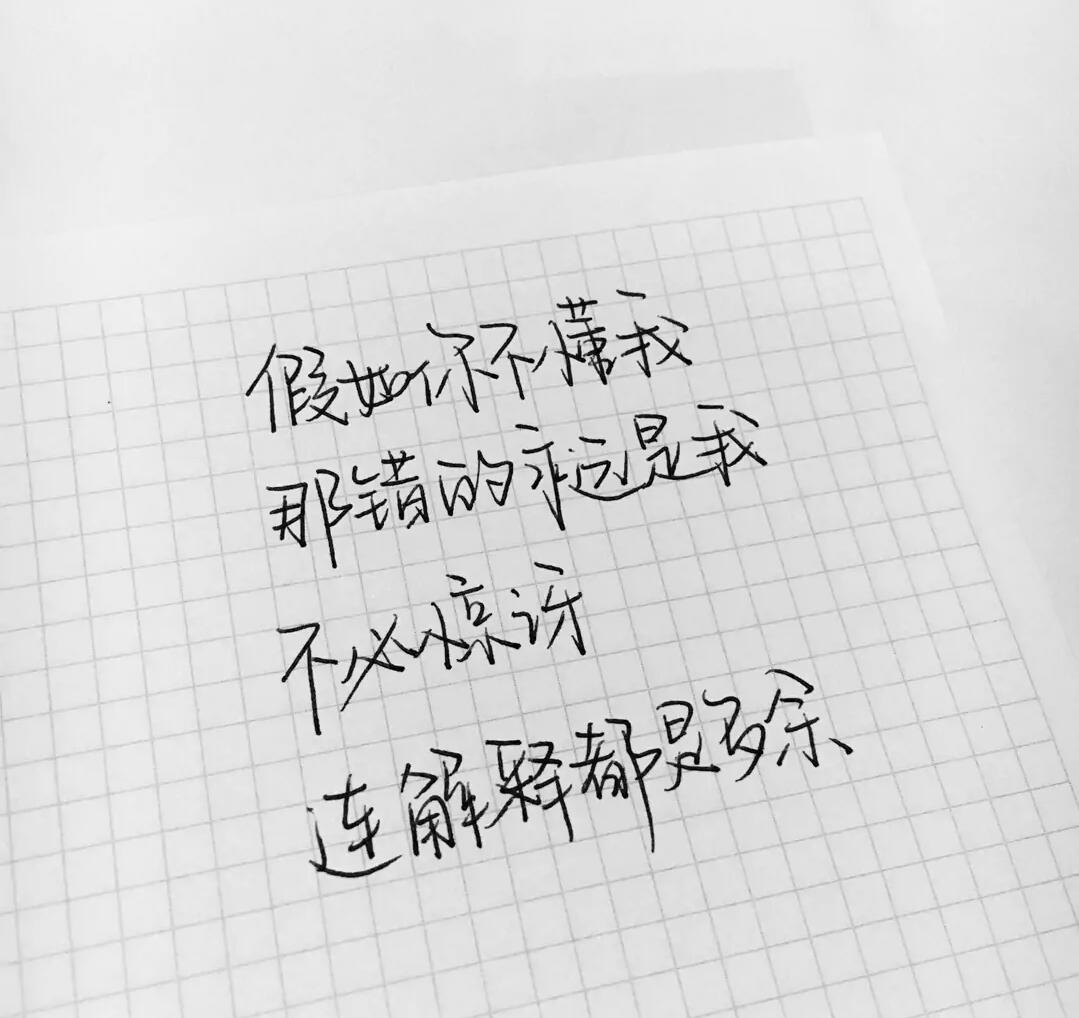 假如你不懂我
那错的永远是我
不必惊讶
连解释都是多余